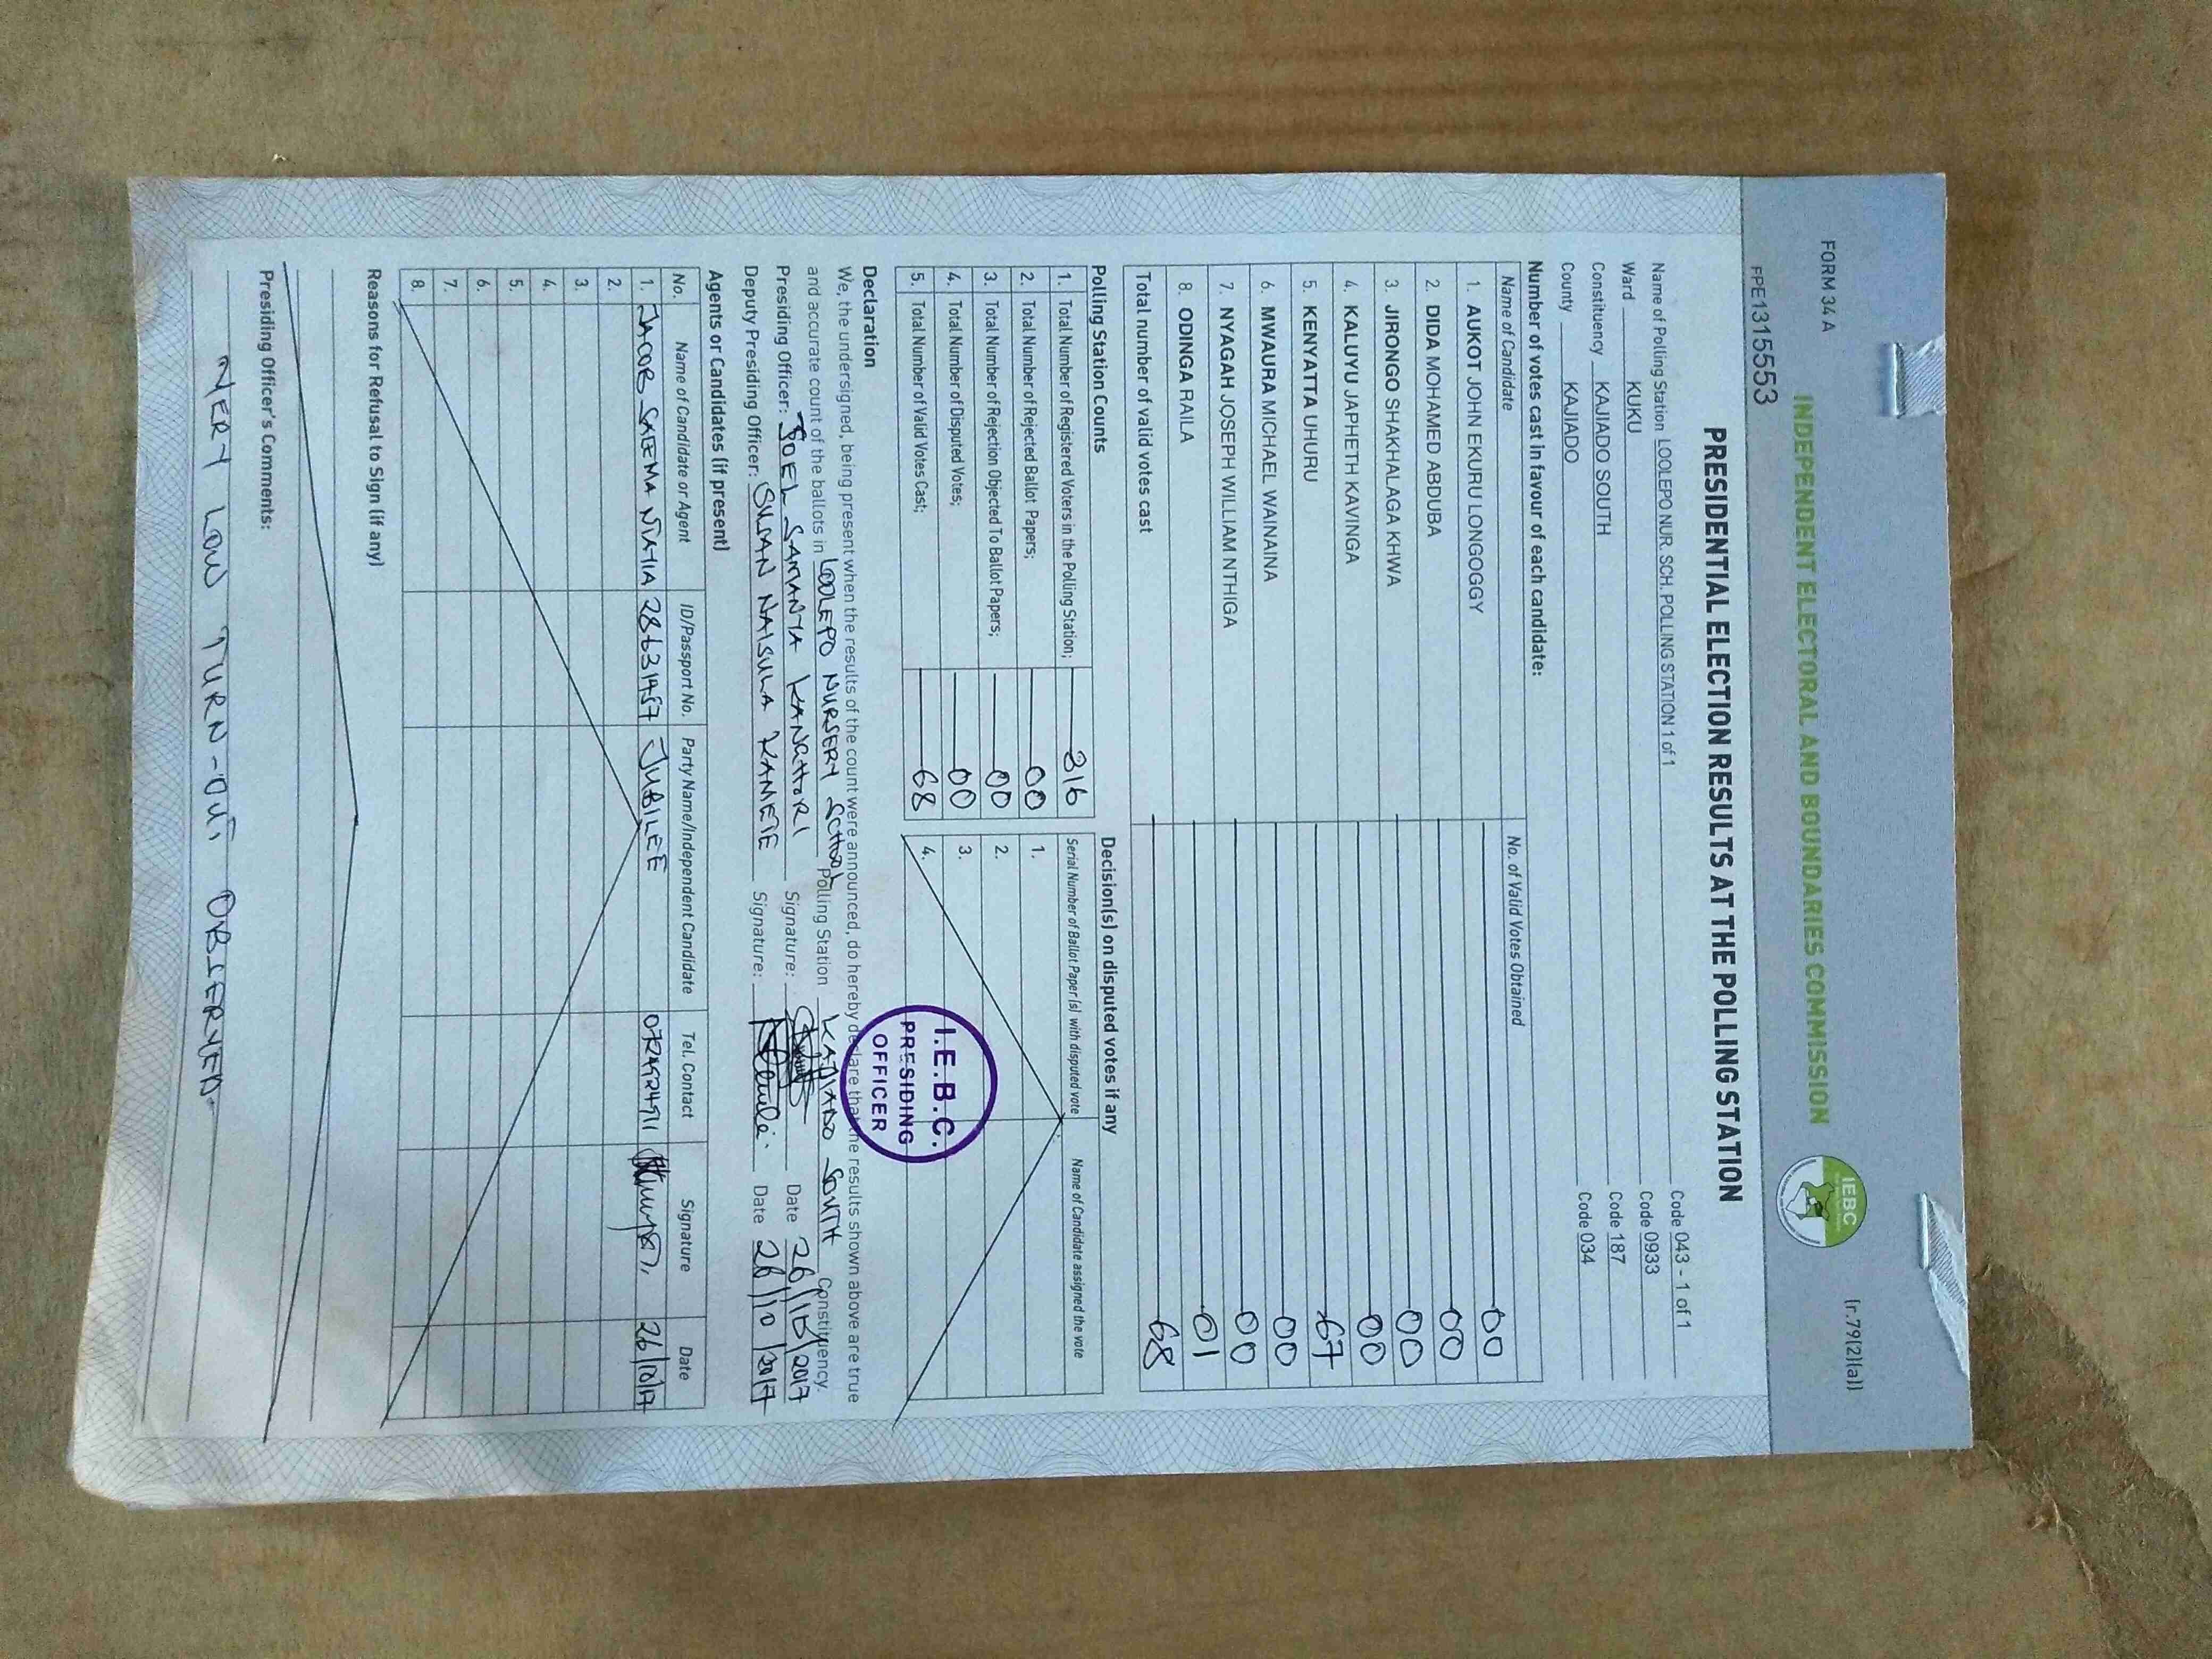 FORM 34 A
(r.79(2)(a))
INDEPENDENT ELECTORAL AND BOUNDARIES COMMISSION
IEBC
FPE1315553
PRESIDENTIAL ELECTION RESULTS AT THE POLLING STATION
Name of Polling Station LOOLEPO NUR. SCH. POLLING STATION 1 of 1 Code 043 - 1 of 1
Ward KUKU Code 0933
Constituency KAJIADO SOUTH Code 187
County KAJIADO Code 034
Number of votes cast in favour of each candidate:
Name of Candidate No. of Valid Votes Obtained
1. AUKOT JOHN EKURU LONGOGGY 00
2. DIDA MOHAMED ABDUBA 00
3. JIRONGO SHAKHALAGA KHWA 00
4. KALUYU JAPHETH KAVINGA 00
5. KENYATTA UHURU 67
6. MWAURA MICHAEL WAINAINA 00
7. NYAGAH JOSEPH WILLIAM NTHIGA 00
8. ODINGA RAILA 01
Total number of valid votes cast 68
Polling Station Counts
1. Total Number of Registered Voters in the Polling Station; 316
2. Total Number of Rejected Ballot Papers; 00
3. Total Number of Rejection Objected To Ballot Papers; 00
4. Total Number of Disputed Votes; 00
5. Total Number of Valid Votes Cast; 68
Decision(s) on disputed votes if any
Serial Number of Ballot Paper (s) with disputed vote Name of Candidate assigned the vote
1.
2.
3.
4.
I.E.B.C.
PRESIDING
OFFICER
Declaration
We, the undersigned, being present when the results of the count were announced, do hereby declare that the results shown above are true
and accurate count of the ballots in LOOLEPO NURSERY SCHOOL Polling Station KAJIADO SOUTH Constituency.
Presiding Officer: JOEL Signature: Date 26/10/2017
Deputy Presiding Officer: SUSAN NAISULA KAMETE Signature: Date 26/10/2017
Agents or Candidates (if present)
No. Name of Candidate or Agent ID/Passport No. Party Name/Independent Candidate Tel. Contact Signature Date
1. JACOB JUBILEE 26/10/17
2.
3.
4.
5.
6.
7.
8.
Reasons for Refusal to Sign (if any)
Presiding Officer's Comments:
VERY LOW TURN-OUT OBSERVED.